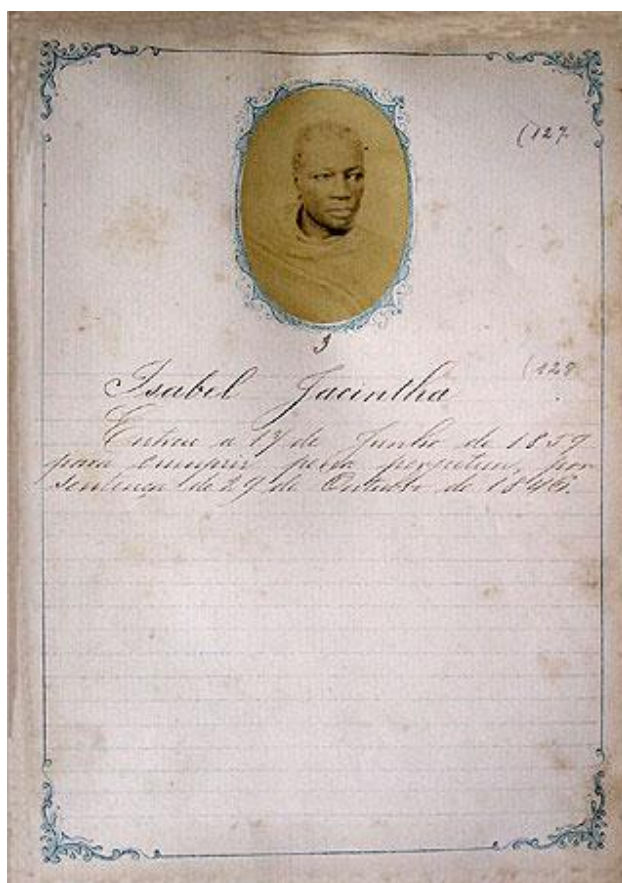 (127
3
Isabel Jacintha
(128
Entrou a 17 de Junho de 1859
para cumprir pena perpetua, por
sentença de 29 de Outubro de 1846.